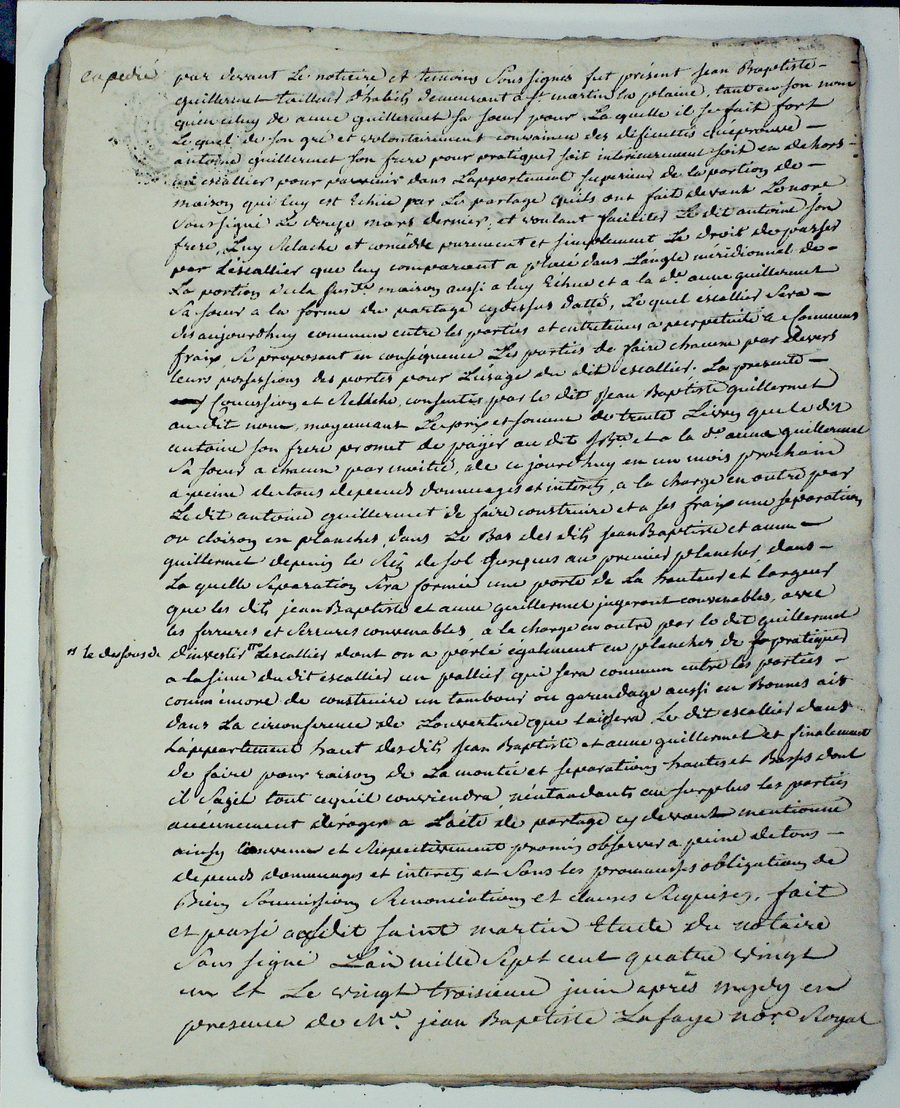 expedié
par devant Le notaire et temoins Soussignés fut présent Jean Baptiste
guillermet tailleur d'habits demeurant a st martin la plaine, tant en son nom
qu'en celuy de anne guillermet sa soeur pour Laquelle il se fait fort
Lequel de son gré et volontairement convaincu des dificultés qu'eprouve
antoine guillermet son frere pour pratiquer soit interieurement soit en dehors
un escallier pour parvenir dans L'appartement superieur de la portion de
maison qui luy est Echue par Le partage quils ont fait devant Le nore
Soussigné Le douze mars dernier, et voulant faciliter Le dit antoine son
frere, Luy Relache et concéde purement et simplement Le droit de passer
par L'escallier que luy comparant a placé dans L'angle méridionnal de
La portion de la susde maison aussi a luy Echue et a la de anne guillermet
Sa soeur a la forme du partage cydessus datté, Le quel escallier Sera
des aujourdhuy commun entre les parties et entretenu a perpetuité a Communs
fraix, Se proposant en conséquence Les parties de faire chacune par devers
leurs possessions des portes pour L'usage du dit escallier. La presente
Concession et Relache, consentie par le dit Jean Baptiste guillermet
au dit nom, moyennant Le prix et somme de trente Livres que le dit
antoine son frere promet de payer au dit Jn Bte et a la de anne guillermet
Sa soeur a chacun par moitié, de ce jourdhuy en un mois prochain
a peine de tous depends dommages et interets, a la charge en outre par
Le dit antoine guillermet de faire construire et a ses fraix une separation
ou cloison en planches, dans Le Bas des dits Jean Baptiste et anne
guillermet depuis le Rez de sol Jusques au premier plancher dans
La quelle Separation Sera formée une porte de La hauteur et largeur
que les dits jean Baptiste et anne guillermet jugeront convenables, avec
les ferrures et Serrures convenables, a la charge en outre par le dit guillermet
" le dessous de
d'investir " L'escallier dont on a parlé egalement en planches, de pratiquer
a la sime du dit escallier un pallier qui sera commun entre les parties
comm'encore de construire un tambour ou garandage aussi en Bonnes ais
dans La circonference de L'ouverture que laissera Le dit escallier dans
L'appartement haut des dits Jean Baptiste et anne guillermet et finalement
de faire pour raison de La montée et separations hautes et Basses dont
il Sagit tout cequ'il conviendra, n'entandants au surplus les parties
aucunnement déroger a L'acte de partage cy devant mentionné
ainsy Convenu et Respectivement promis observer a peine de tous
depends dommages et interets et Sous les promesses obligations de
Biens Soumissions Renonciations et clauses Requises, fait
et passé audit saint martin Etude du notaire
Sous signé L'an mille Sept cent quatre vingt
un et Le vingt troisieme juin après mydy en
presence de Me jean Baptiste Lafaye nore Royal